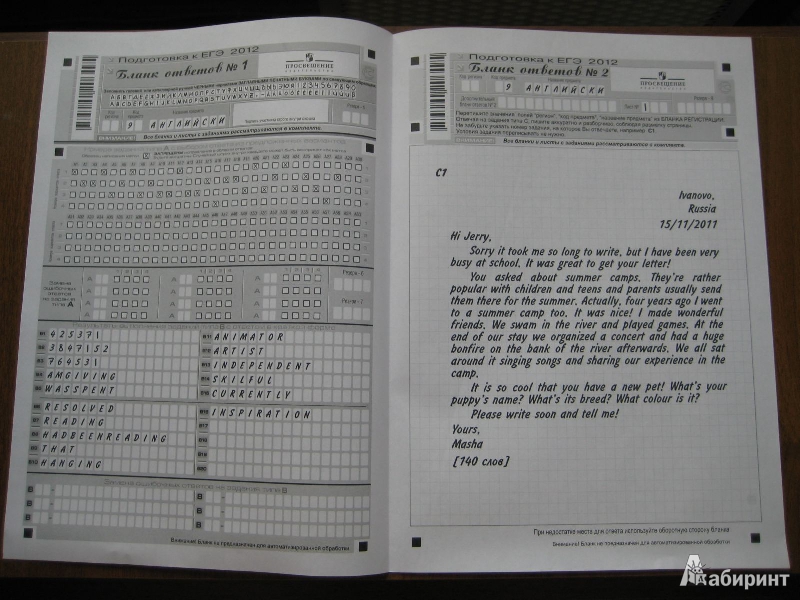 Подготовка к ЕГЭ 2012
Бланк ответов № 1
ПРОСВЕЩЕНИЕ
ИЗДАТЕЛЬСТВО
9 АНГЛИЙСКИ
ВНИМАНИЕ! Все бланки и листы с заданиями рассматриваются в комплекте.
Резерв - 6
Резерв - 7
Замена
ошибочных
ответов
на задания
типа А
B1 425371
B2 3847152
B3 764531
B4 AMGIVING
B5 WASSPENT
B6 RESOLVED
B7 READING
B8 HADBEENREADING
B9 THAT
B10 HANGING
B11 ANIMATOR
B12 ARTIST
B13 INDEPENDENT
B14 SKILFUL
B15 CURRENTLY
B16 INSPIRATION
B17
B18
B19
B20
Замена ошибочных ответов на задания типа В
В
В
В
В
В
В
Внимание! Бланк не предназначен для автоматизированной обработки
Подготовка к ЕГЭ 2012
Бланк ответов № 2
ПРОСВЕЩЕНИЕ
ИЗДАТЕЛЬСТВО
9 АНГЛИЙСКИ
Лист № 1
Все бланки и листы с заданиями рассматриваются в комплекте.
C1
Ivanovo,
Russia
15/11/2011
Hi Jerry,
Sorry it took me so long to write, but I have been very
busy at school. It was great to get your letter!
You asked about summer camps. They're rather
popular with children and teens and parents usually send
them there for the summer. Actually, four years ago I went
to a summer camp too. It was nice! I made wonderful
friends. We swam in the river and played games. At the
end of our stay we organized a concert and had a huge
bonfire on the bank of the river afterwards. We all sat
around it singing songs and sharing our experience in the
camp.
It is so cool that you have a new pet! What's your
puppy's name? What's its breed? What colour is it?
Please write soon and tell me!
Yours,
Masha
[140 слов]
При недостатке места для ответа используйте оборотную сторону бланка
Внимание! Бланк не предназначен для автоматизированной обработки
Лабиринт.ру